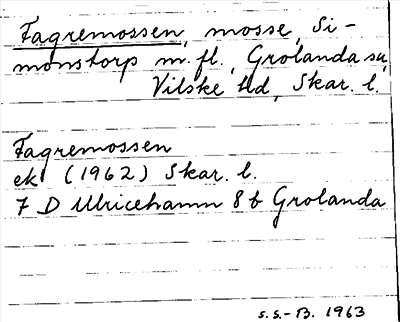 Fagremossen, mosse, Si-
monstorp m.fl., Grolanda sn,
Vilske hd, Skar. l.
Fagremossen
ek (1962) Skar. l.
7 D Ulricehamn 8 b Grolanda
s.s.-B. 1963